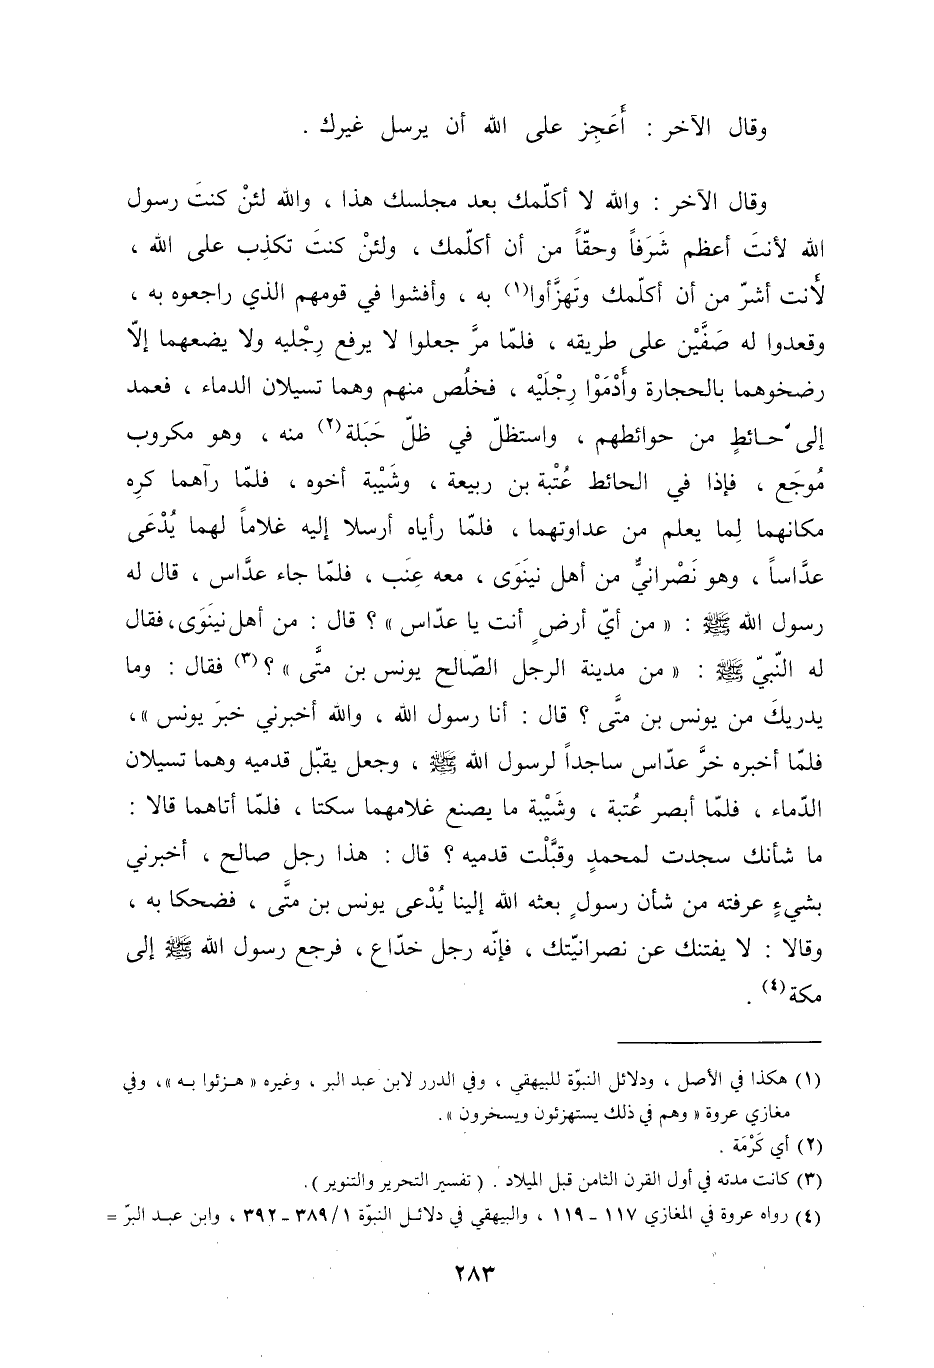 وقال الآخر : أَعَجِز على الله أن يرسل غيرك .
وقال الآخر : والله لا أكلّمك بعد مجلسك هذا ، والله لئنْ كنتَ رسول
الله لأنتَ أعظم شَرَفاً وحقّاً من أن أكلّمك ، ولئنْ كنتَ تكذِب على الله ،
لأنت أشرّ من أن أكلّمك وتَهزَّأوا(١) به ، وأفشوا في قومهم الذي راجعوه به ،
وقعدوا له صَفَّيْن على طريقه ، فلمّا مرَّ جعلوا لا يرفع رِجْليه ولا يضعهما إلاّ
رضخوهما بالحجارة وأَدْمَوْا رِجْلَيْه ، فخلُص منهم وهما تسيلان الدماء ، فعمد
إلى حائطٍ من حوائطهم ، واستظلّ في ظلّ حَبَلة(٢) منه ، وهو مكروب
مُوجَع ، فإذا في الحائط عُتْبة بن ربيعة ، وشَيْبة أخوه ، فلمّا رآهما كرِه
مكانهما لِما يعلم من عداوتهما ، فلمّا رأياه أرسلا إليه غلاماً لهما يُدْعَى
عدَّاساً ، وهو نَصْرانيٌّ من أهل نينَوَى ، معه عِنَب ، فلمّا جاء عدَّاس ، قال له
رسول الله ﷺ : « من أيّ أرضٍ أنت يا عدّاس » ؟ قال : من أهل نينَوَى ، فقال
له النّبيّ ﷺ : « من مدينة الرجل الصّالح يونس بن متَّى » ؟(٣) فقال : وما
يدريكَ من يونس بن متَّى ؟ قال : أنا رسول الله ، والله أخبرني خبرَ يونس » ،
فلمّا أخبره خرَّ عدّاس ساجداً لرسول الله ﷺ ، وجعل يقبّل قدميه وهما تسيلان
الدّماء ، فلمّا أبصر عُتبة ، وشَيْبة ما يصنع غلامهما سكتا ، فلمّا أتاهما قالا :
ما شأنك سجدت لمحمدٍ وقبَّلْت قدميه ؟ قال : هذا رجل صالح ، أخبرني
بشيءٍ عرفته من شأن رسولٍ بعثه الله إلينا يُدْعى يونس بن متَّى ، فضحكا به ،
وقالا : لا يفتنك عن نصرانيّتك ، فإنّه رجل خدّاع ، فرجع رسول الله ﷺ إلى
مكة(٤) .
(١) هكذا في الأصل ، ودلائل النبوّة للبيهقي ، وفي الدرر لابن عبد البر ، وغيره « هـزئوا بـه » ، وفي
مغازي عروة « وهم في ذلك يستهزئون ويسخرون » .
(٢) أي كَرْمَة .
(٣) كانت مدته في أول القرن الثامن قبل الميلاد . ( تفسير التحرير والتنوير ) .
(٤) رواه عروة في المغازي ١١٧ ـ ١١٩ ، والبيهقي في دلائل النبوّة ١/ ٣٨٩ ـ ٣٩٢ ، وابن عبد البرّ =
٢٨٣